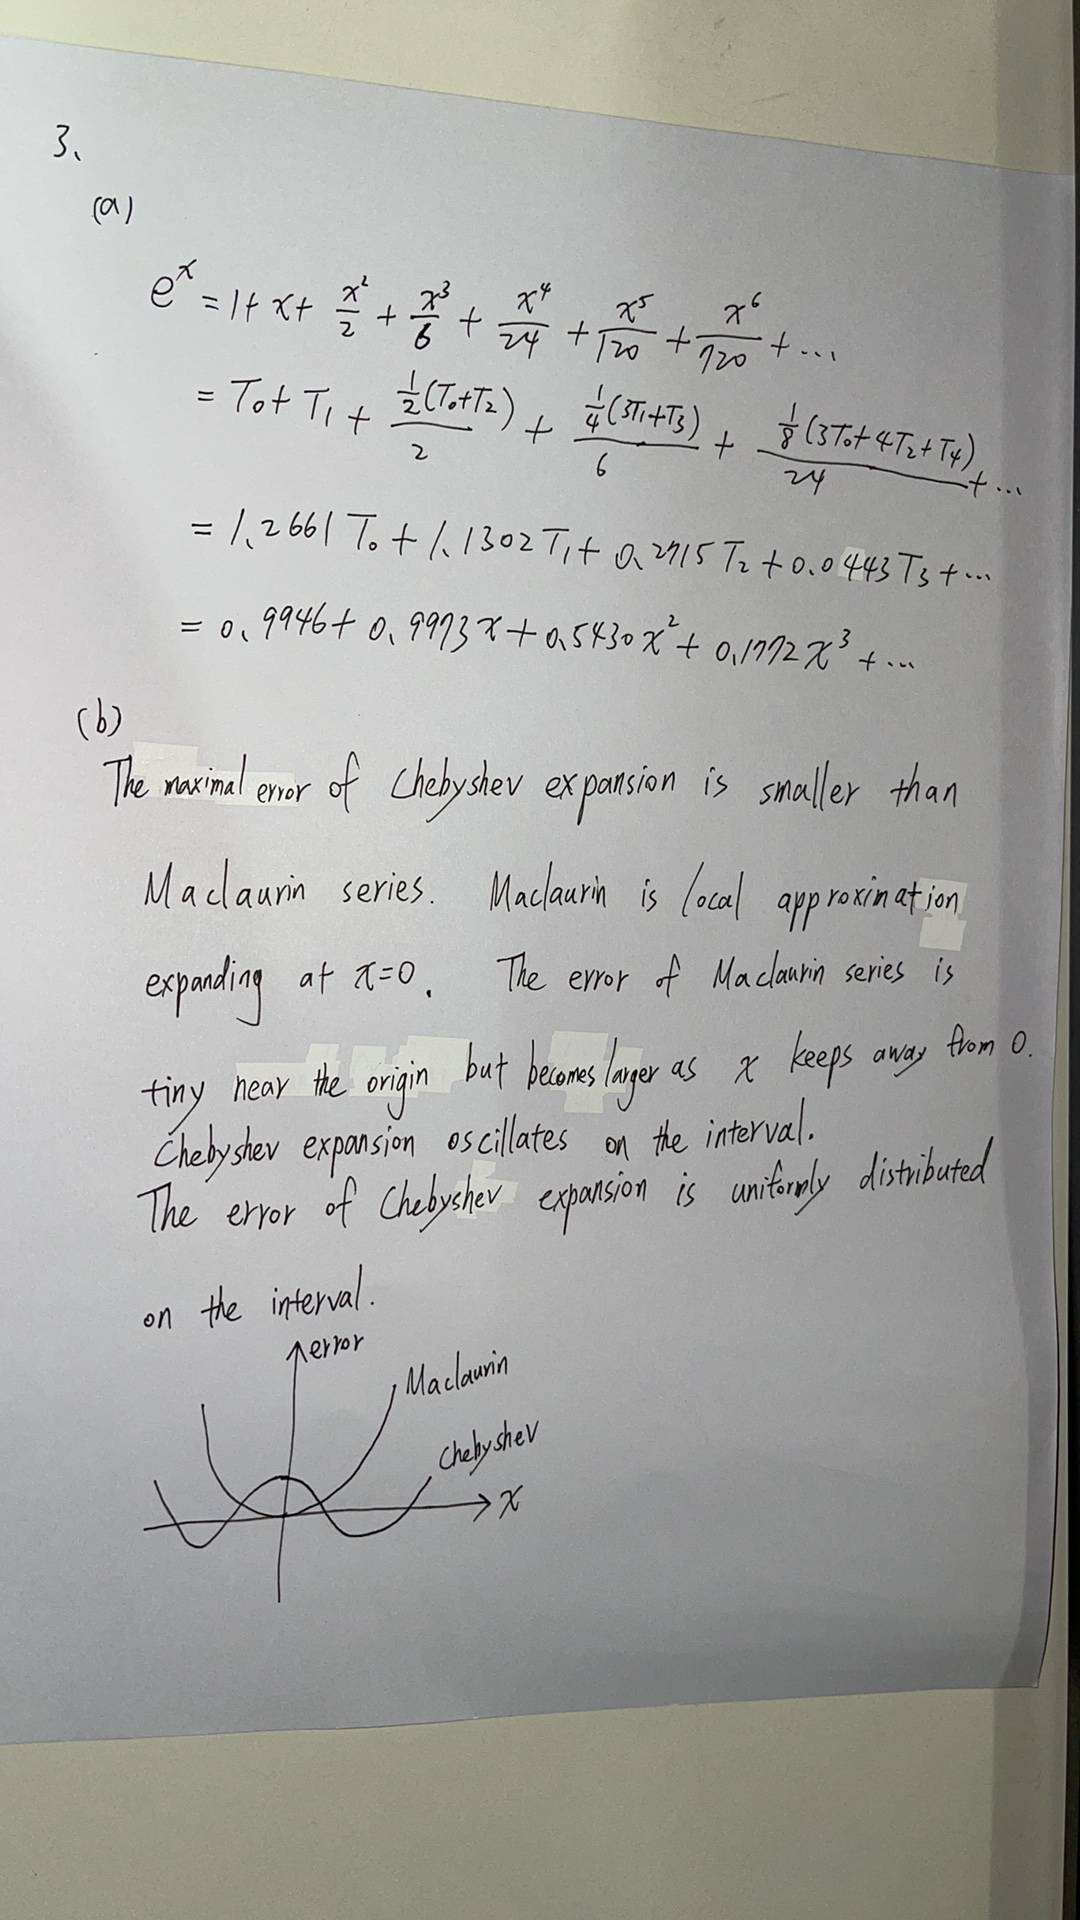 3、
(a)
e^x = 1 + x + x²/2 + x³/6 + x⁴/24 + x⁵/120 + x⁶/720 + ...
= T₀ + T₁ + ½(T₀+T₂)/2 + ¼(3T₁+T₃)/6 + ⅛(3T₀+4T₂+T₄)/24 + ...
= 1.2661 T₀ + 1.1302 T₁ + 0.2715 T₂ + 0.0443 T₃ + ...
= 0.9946 + 0.9973x + 0.5430x² + 0.1772x³ + ...
(b)
The maximal error of Chebyshev expansion is smaller than
Maclaurin series. Maclaurin is local approximation
expanding at x=0. The error of Maclaurin series is
tiny near the origin but becomes larger as x keeps away from 0.
Chebyshev expansion oscillates on the interval.
The error of Chebyshev expansion is uniformly distributed
on the interval.
error
Maclaurin
Chebyshev
x